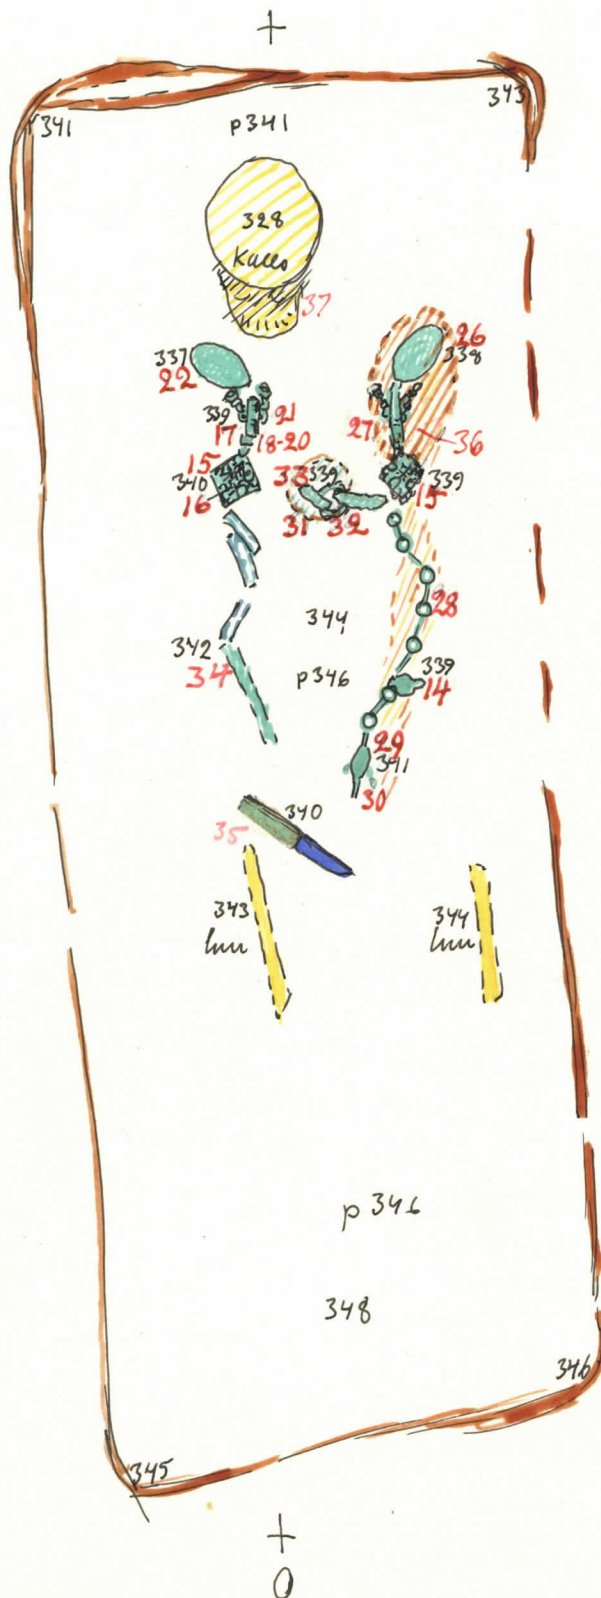 +
341
343
p341
328
Kallo
37
337
22
26
338
339
21
17
18-20
27
36
15
340
16
33
339
31
32
339
15
28
344
342
34
p346
339
14
29
341
30
340
35
343
luu
344
luu
p346
348
346
345
+
0